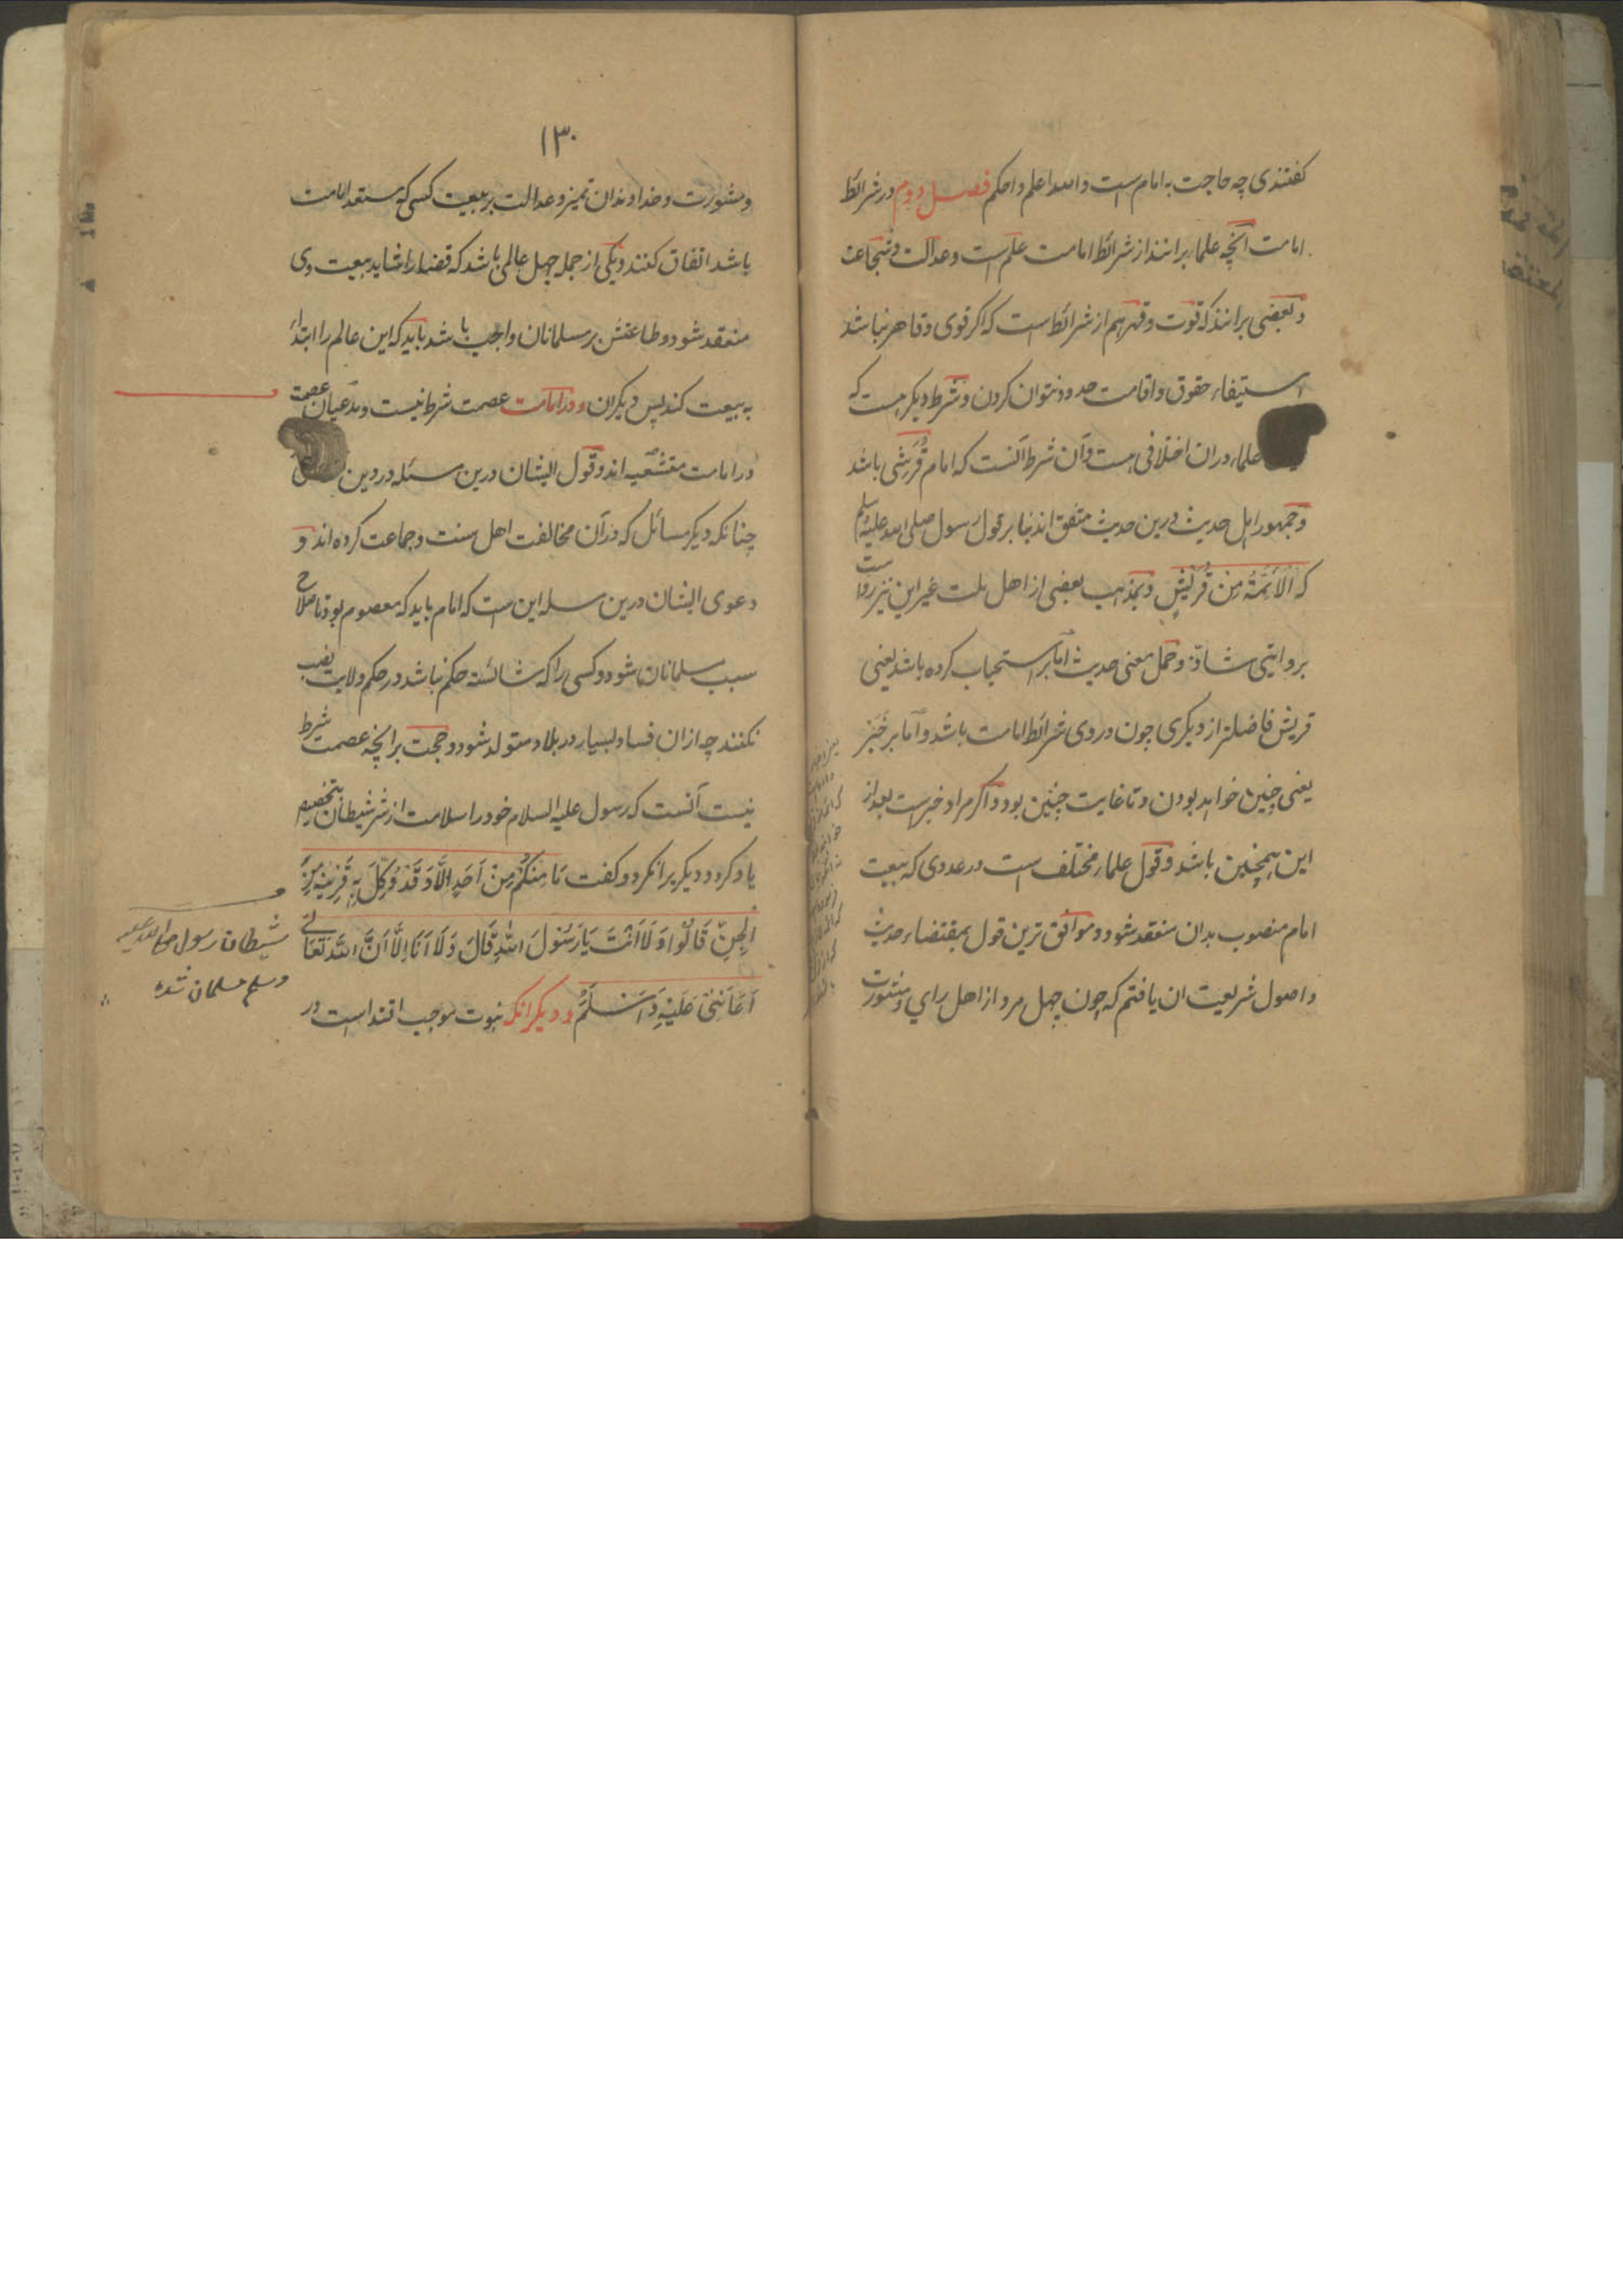 کفتندی چه حاجت به امام است والله اعلم واحکم فصل دوم در شرائط
امامت آنچه علما برانند از شرائط امامت علم است وعدالت وشجاعت
وبعضی برانند که قوت وقهر هم از شرائط است که اکر قوی وقاهر نباشد
استیفاء حقوق واقامت حدود نتوان کردن وشرط دیکر هست که
علماء دران اختلافی هست وآن شرط آنست که امام قُرَشی باشد
وجمهور اهل حدیث درین حدیث متفق اند بنا بر قول رسول صلی الله علیه وسلم
که اَلاَئِمَّةُ مِنْ قُرَیْشٍ وبمذهب بعضی از اهل ملت غیر این نیز روا است
بروایتی شاذّ وحمل معنی حدیث اما بر استحباب کرده باشد یعنی
قریش فاضلتر از دیکری چون در وی شرائط امامت باشد واما بر خبر
یعنی چنین خواهد بودن وتا غایت چنین بود واکر مراد خبر است بعد از
این همچنین باشد وقول علماء مختلف است در عددی که ببیعت
امام منصوب بدان منعقد شود وموافق ترین قول بمقتضاء حدیث
واصول شریعت ان یافتم که چون چهل مرد از اهل رای ومشورت
۱۳۰
ومشورت وخداوندان تمیز وعدالت بر بیعت کسی که مستعد امامت
باشد اتفاق کنند ویکی از جمله چهل عالمی باشد که قضا را شاید بیعت وی
منعقد شود وطاعتش بر مسلمانان واجب باشد باید که این عالم را ابتداء
به بیعت کند پس دیکران ودر امامت عصمت شرط نیست ومدعیان عصمت
در امامت متشعیه اند وقول ایشان درین مسئله در دین
چنانکه دیکر مسائل که در آن مخالفت اهل سنت وجماعت کرده اند و
دعوی ایشان درین مسله این است که امام باید که معصوم بود تا صلاح
سبب مسلمانان شود وکسی را که شائسته حکم نباشد در حکم ولایت نصب
نکنند چه ازان فساد بسیار در بلاد متولد شود وحجت برانچه عصمت شرط
نیست آنست که رسول علیه السلام خود را سلامت از شر شیطان بتخصیص
یاد کرد ودیکر برانکر دوکفت مَا مِنْکُمْ مِنْ اَحَدٍ اِلَّا وَقَدْ وُکِّلَ بِهِ قَرِیْنُهُ مِنَ
الْجِنِّ قَالُوْا وَلَا اَنْتَ یَا رَسُوْلَ اللّٰهِ قَالَ وَلَا اَنَا اِلَّا اَنَّ اللّٰهَ تَعَالٰی
اَعَانَنِیْ عَلَیْهِ فَاَسْلَمَ ودیکر انکه نبوت موجب اقتدا است در
شیطان رسول صلی الله علیه
وسلم مسلمان شده